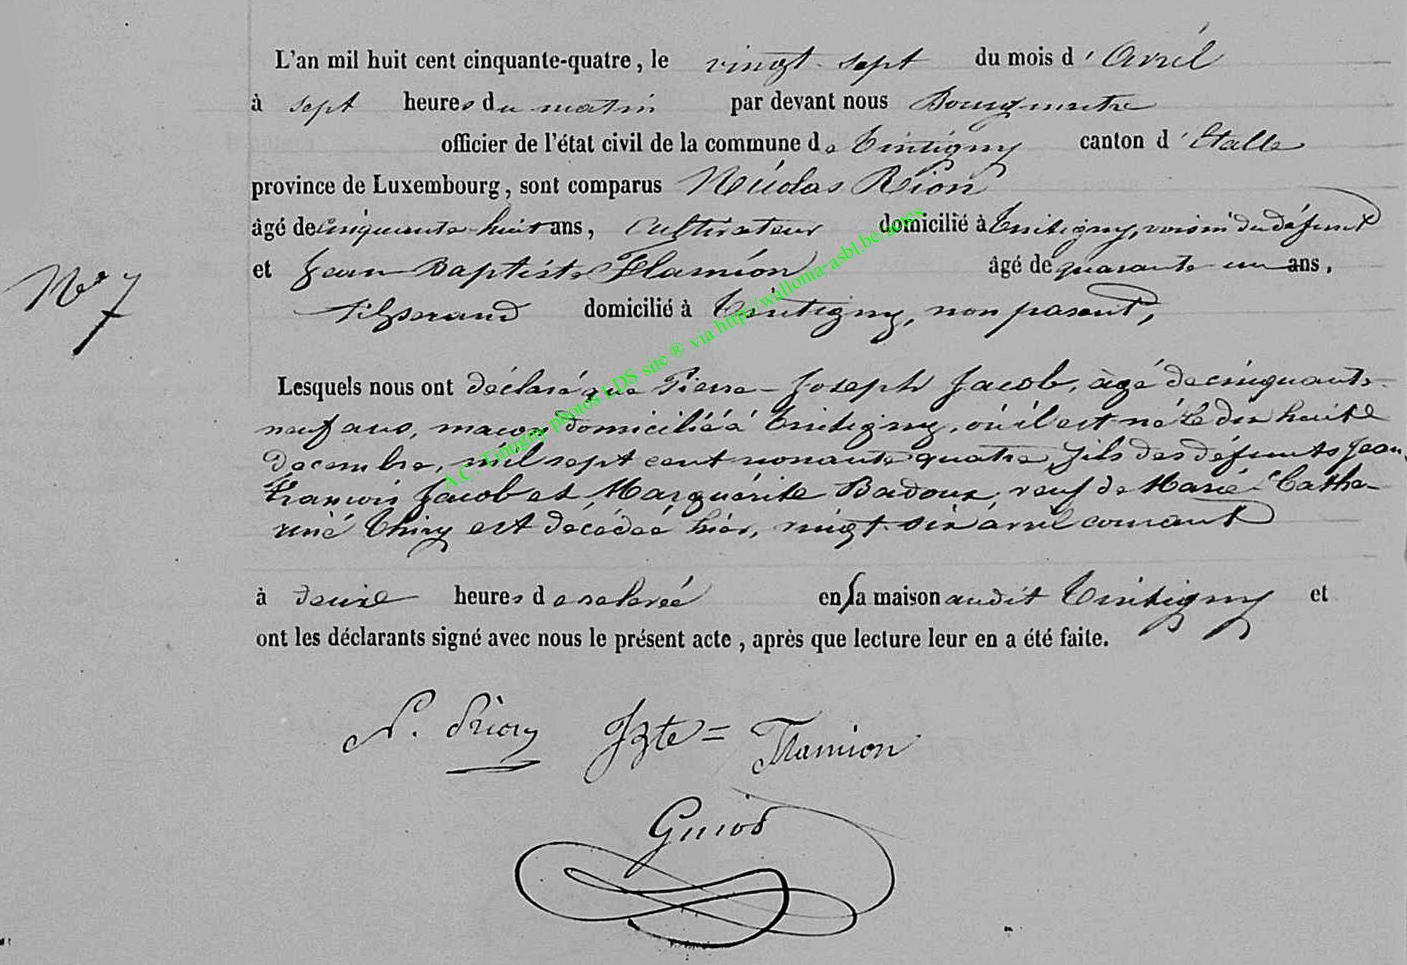 L'an mil huit cent cinquante-quatre, le vingt-sept du mois d'Avril
à sept heures du matin par devant nous Bourgmestre
officier de l'état civil de la commune de Tintigny canton d'Etalle
province de Luxembourg, sont comparus Nicolas Rion
âgé de cinquante-huit ans, Cultivateur domicilié à Tintigny, voisin du défunt
et Jean Baptiste Flamion âgé de quarante un ans,
N° 7
domicilié à Tintigny, non parent,
Lesquels nous ont déclaré que Pierre-Joseph Jacob, âgé de cinquante-
neuf ans, maçon domicilié à Tintigny, où il est né le dix huit
décembre, mil sept cent nonante quatre, fils des défunts Jean-
François Jacob et Marguérite Badoux, veuf de Marie-Cathe-
rine Thiry est décédé hier, vingt-six avril courant
à heures de relevée en sa maison audit Tintigny et
ont les déclarants signé avec nous le présent acte, après que lecture leur en a été faite.
N. Rion JBte = Flamion
A.C. Tintigny photos LDS site ® via http://walloma-asbl.be/actes